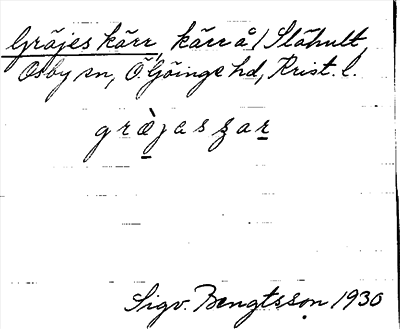 Gräjes kärr, kärr å / Slähult,
Osby sn, Ö Göinge hd, Krist. l.
græ̀jasʒar
Sigv. Bengtsson 1930